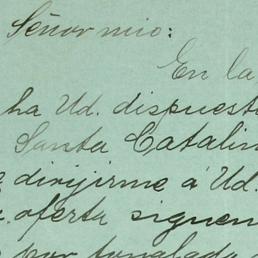 Señor mio:
En la
ha Ud. dispuesto
Santa Catalin
dirijirme á Ud.
oferta siguen
por tonelada